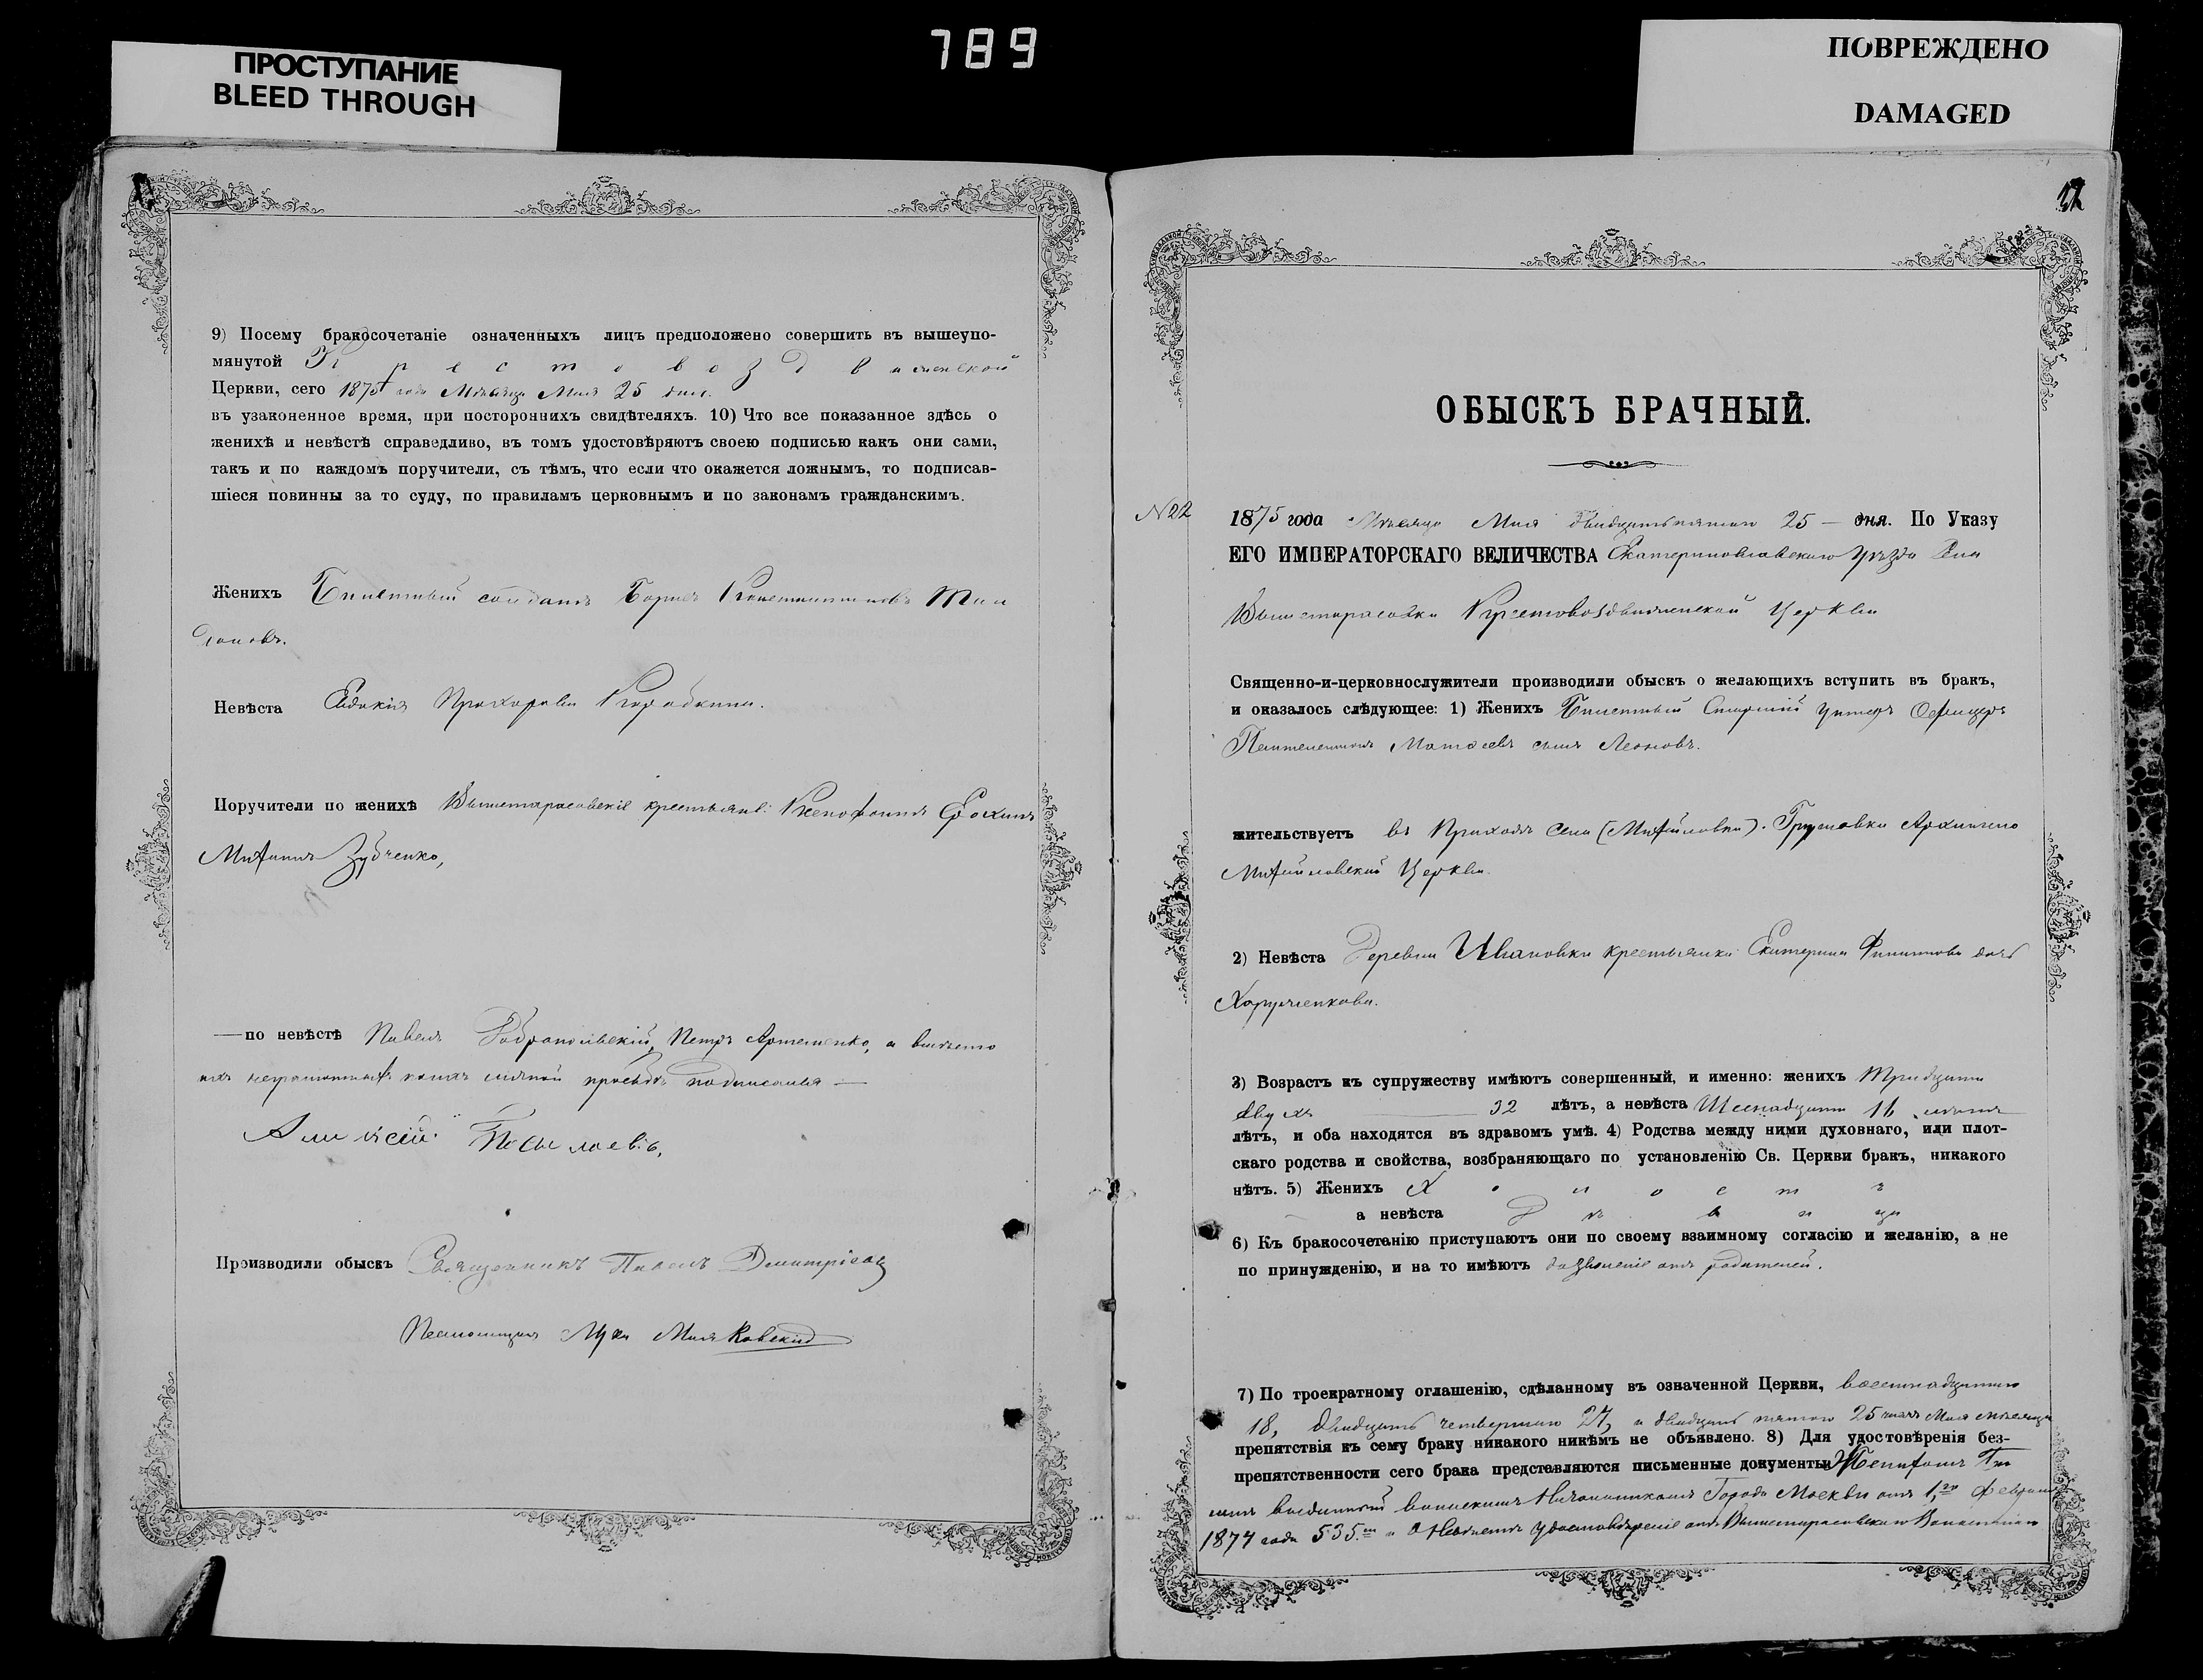 ПРОСТУПАНИЕ
BLEED THROUGH
789
ПОВРЕЖДЕНО
DAMAGED
9) Посему бракосочетаніе означенныхъ лицъ предположено совершить въ вышеупо-
мянутой Крестовоздвиженской
Церкви, сего 1875 года Мѣсяца Мая 25 дня.
въ узаконенное время, при постороннихъ свидѣтеляхъ. 10) Что все показанное здѣсь о
женихѣ и невѣстѣ справедливо, въ томъ удостовѣряютъ своею подписью какъ они сами,
такъ и по каждомъ поручители, съ тѣмъ, что если что окажется ложнымъ, то подписав-
шіеся повинны за то суду, по правиламъ церковнымъ и по законамъ гражданскимъ.
Женихъ Билетный солдатъ Борисъ Константиновъ
Невѣста Евдокія Прохорова Коробкина.
Поручители по женихѣ Вышетарасовскіе крестьяне: Ксенофонтъ
Зубченко,
—по невѣстѣ Павелъ Добропольскій, Петръ Артеменко, а вмѣсто
ихъ неграмотныхъ по ихъ личной просьбѣ подписался —
Алексѣй
Производили обыскъ Священникъ Павелъ
Псаломщикъ Лука
12
ОБЫСКЪ БРАЧНЫЙ.
N 22
1875 года Мѣсяца Мая двадцать пятаго 25 — дня. По Указу
ЕГО ИМПЕРАТОРСКАГО ВЕЛИЧЕСТВА Екатеринославскаго Уѣзда Села
Вышетарасовки Крестовоздвиженской Церкви
Священно-и-церковнослужители производили обыскъ о желающихъ вступить въ бракъ,
и оказалось слѣдующее: 1) Женихъ Билетный Старшій Унтеръ Офицеръ
Пантелеимонъ Матѳеевъ сынъ Леоновъ.
жительствуетъ въ Приходѣ Села (Михайловки). Грушовки Архангело
Михайловской Церкви.
2) Невѣста Деревни Ивановки крестьянка Екатерина Филиппова дочь
Харученкова.
3) Возрастъ къ супружеству имѣютъ совершенный, и именно: женихъ Тридцати
двухъ 32 лѣтъ, а невѣста Шеснадцати 16 лѣтъ
лѣтъ, и оба находятся въ здравомъ умѣ. 4) Родства между ними духовнаго, или плот-
скаго родства и свойства, возбраняющаго по установленію Св. Церкви бракъ, никакого
нѣтъ. 5) Женихъ Холостъ
а невѣста Дѣвица
6) Къ бракосочетанію приступаютъ они по своему взаимному согласію и желанію, а не
по принужденію, и на то имѣютъ дозволеніе отъ родителей.
7) По троекратному оглашенію, сдѣланному въ означенной Церкви, восемнадцатаго
18, двадцать четвертаго 24, и двадцать пятаго 25 числъ Мая мѣсяца
препятствія къ сему браку никакого никѣмъ не объявлено. 8) Для удостовѣренія без-
препятственности сего брака представляются письменные документы: Женихомъ Би
летъ выданный воинскимъ Начальникомъ Города Москвы отъ 1го Февраля
1874 года 535 и Невѣстою Удостовѣреніе отъ Вышетарасовскаго Волостнаго